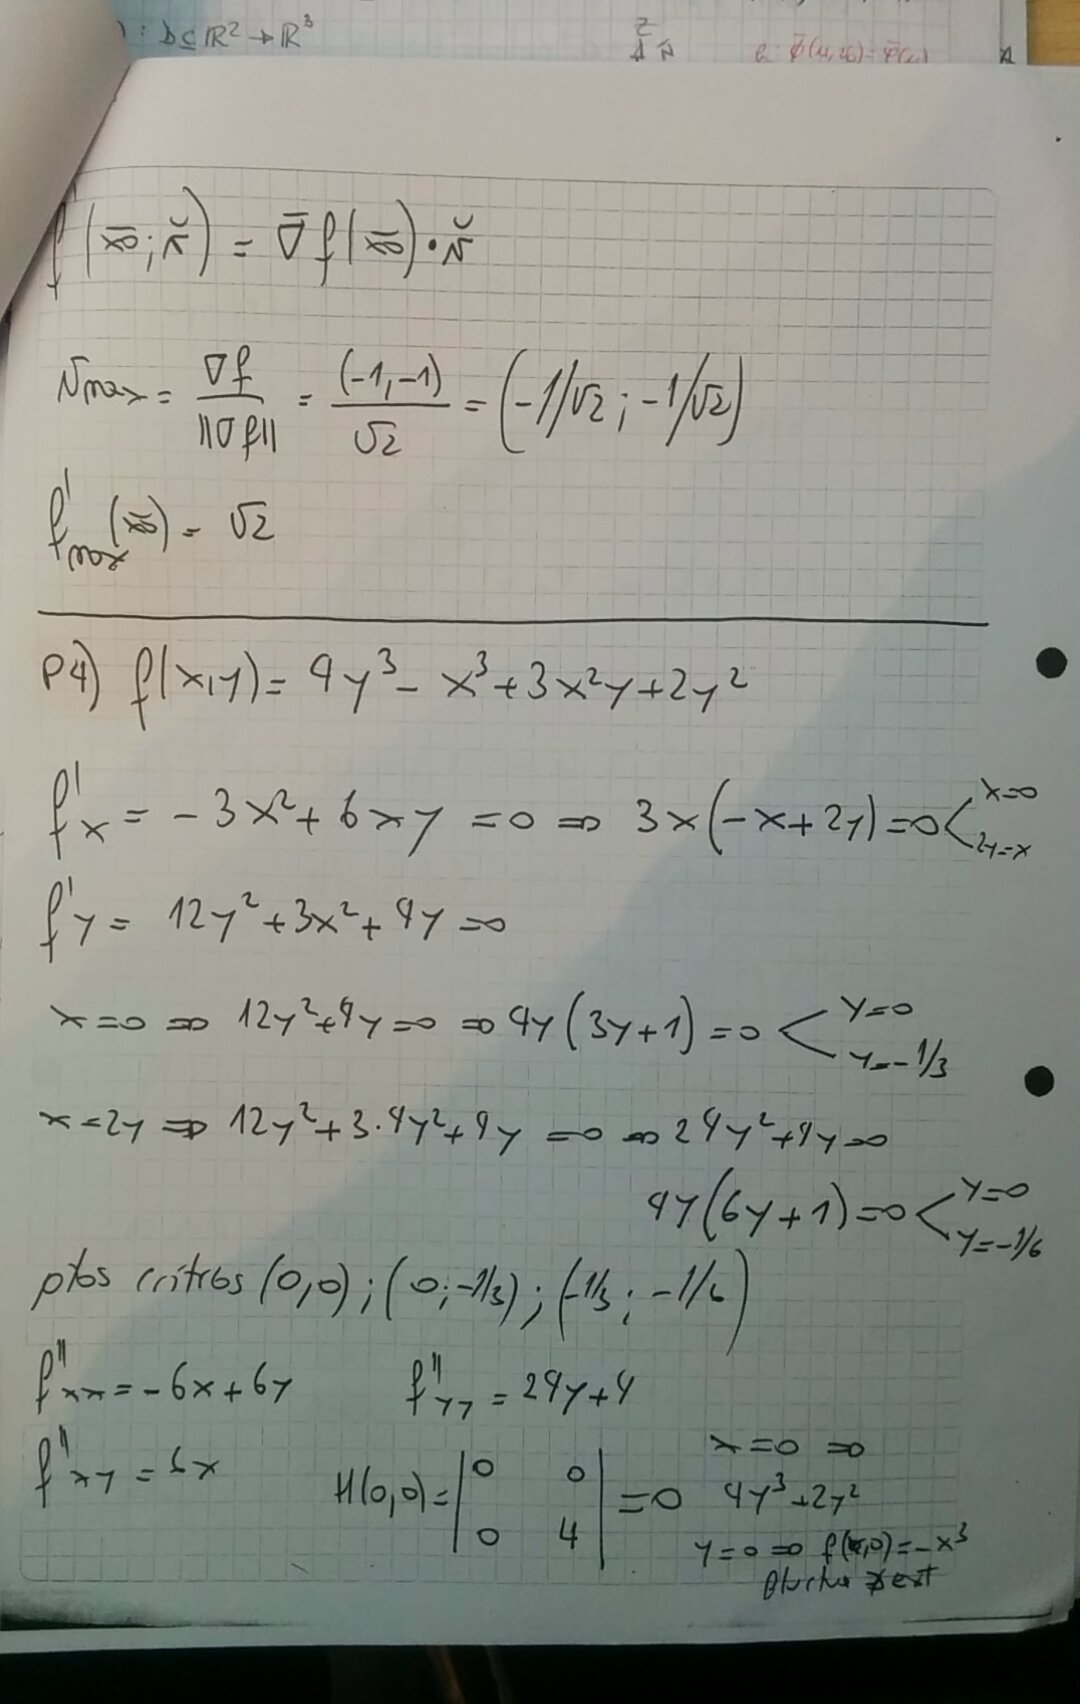 : D⊆ℝ² → ℝ³
f'(x̄₀; v̌) = ∇̄f(x̄₀)·v̌
v̌max = ∇f/||∇f|| = (-1,-1)/√2 = (-1/√2 ; -1/√2)
f'max(x̄₀) = √2
P4) f(x,y) = 4y³ - x³ + 3x²y + 2y²
f'x = -3x² + 6xy = 0 ⇒ 3x(-x+2y) = 0 < x=0
2y=x
f'y = 12y² + 3x² + 4y = 0
x=0 ⇒ 12y²+4y=0 ⇒ 4y(3y+1)=0 < y=0
y=-1/3
x=2y ⇒ 12y²+3·4y²+4y=0 ⇒ 24y²+4y=0
4y(6y+1)=0 < y=0
y=-1/6
ptos críticos (0,0); (0;-1/3); (-1/3; -1/6)
f''xx = -6x+6y f''yy = 24y+4
f''xy = 6x H(0,0) = |0 0
0 4| = 0
x=0 ⇒
4y³+2y²
y=0 ⇒ f(x,0)=-x³
∄ ext